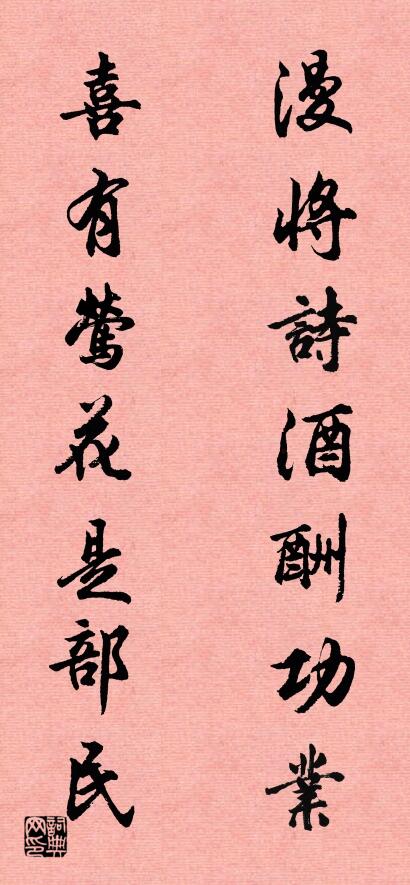 漫將詩酒酬功業
喜有鶯花是部民
詞典网印